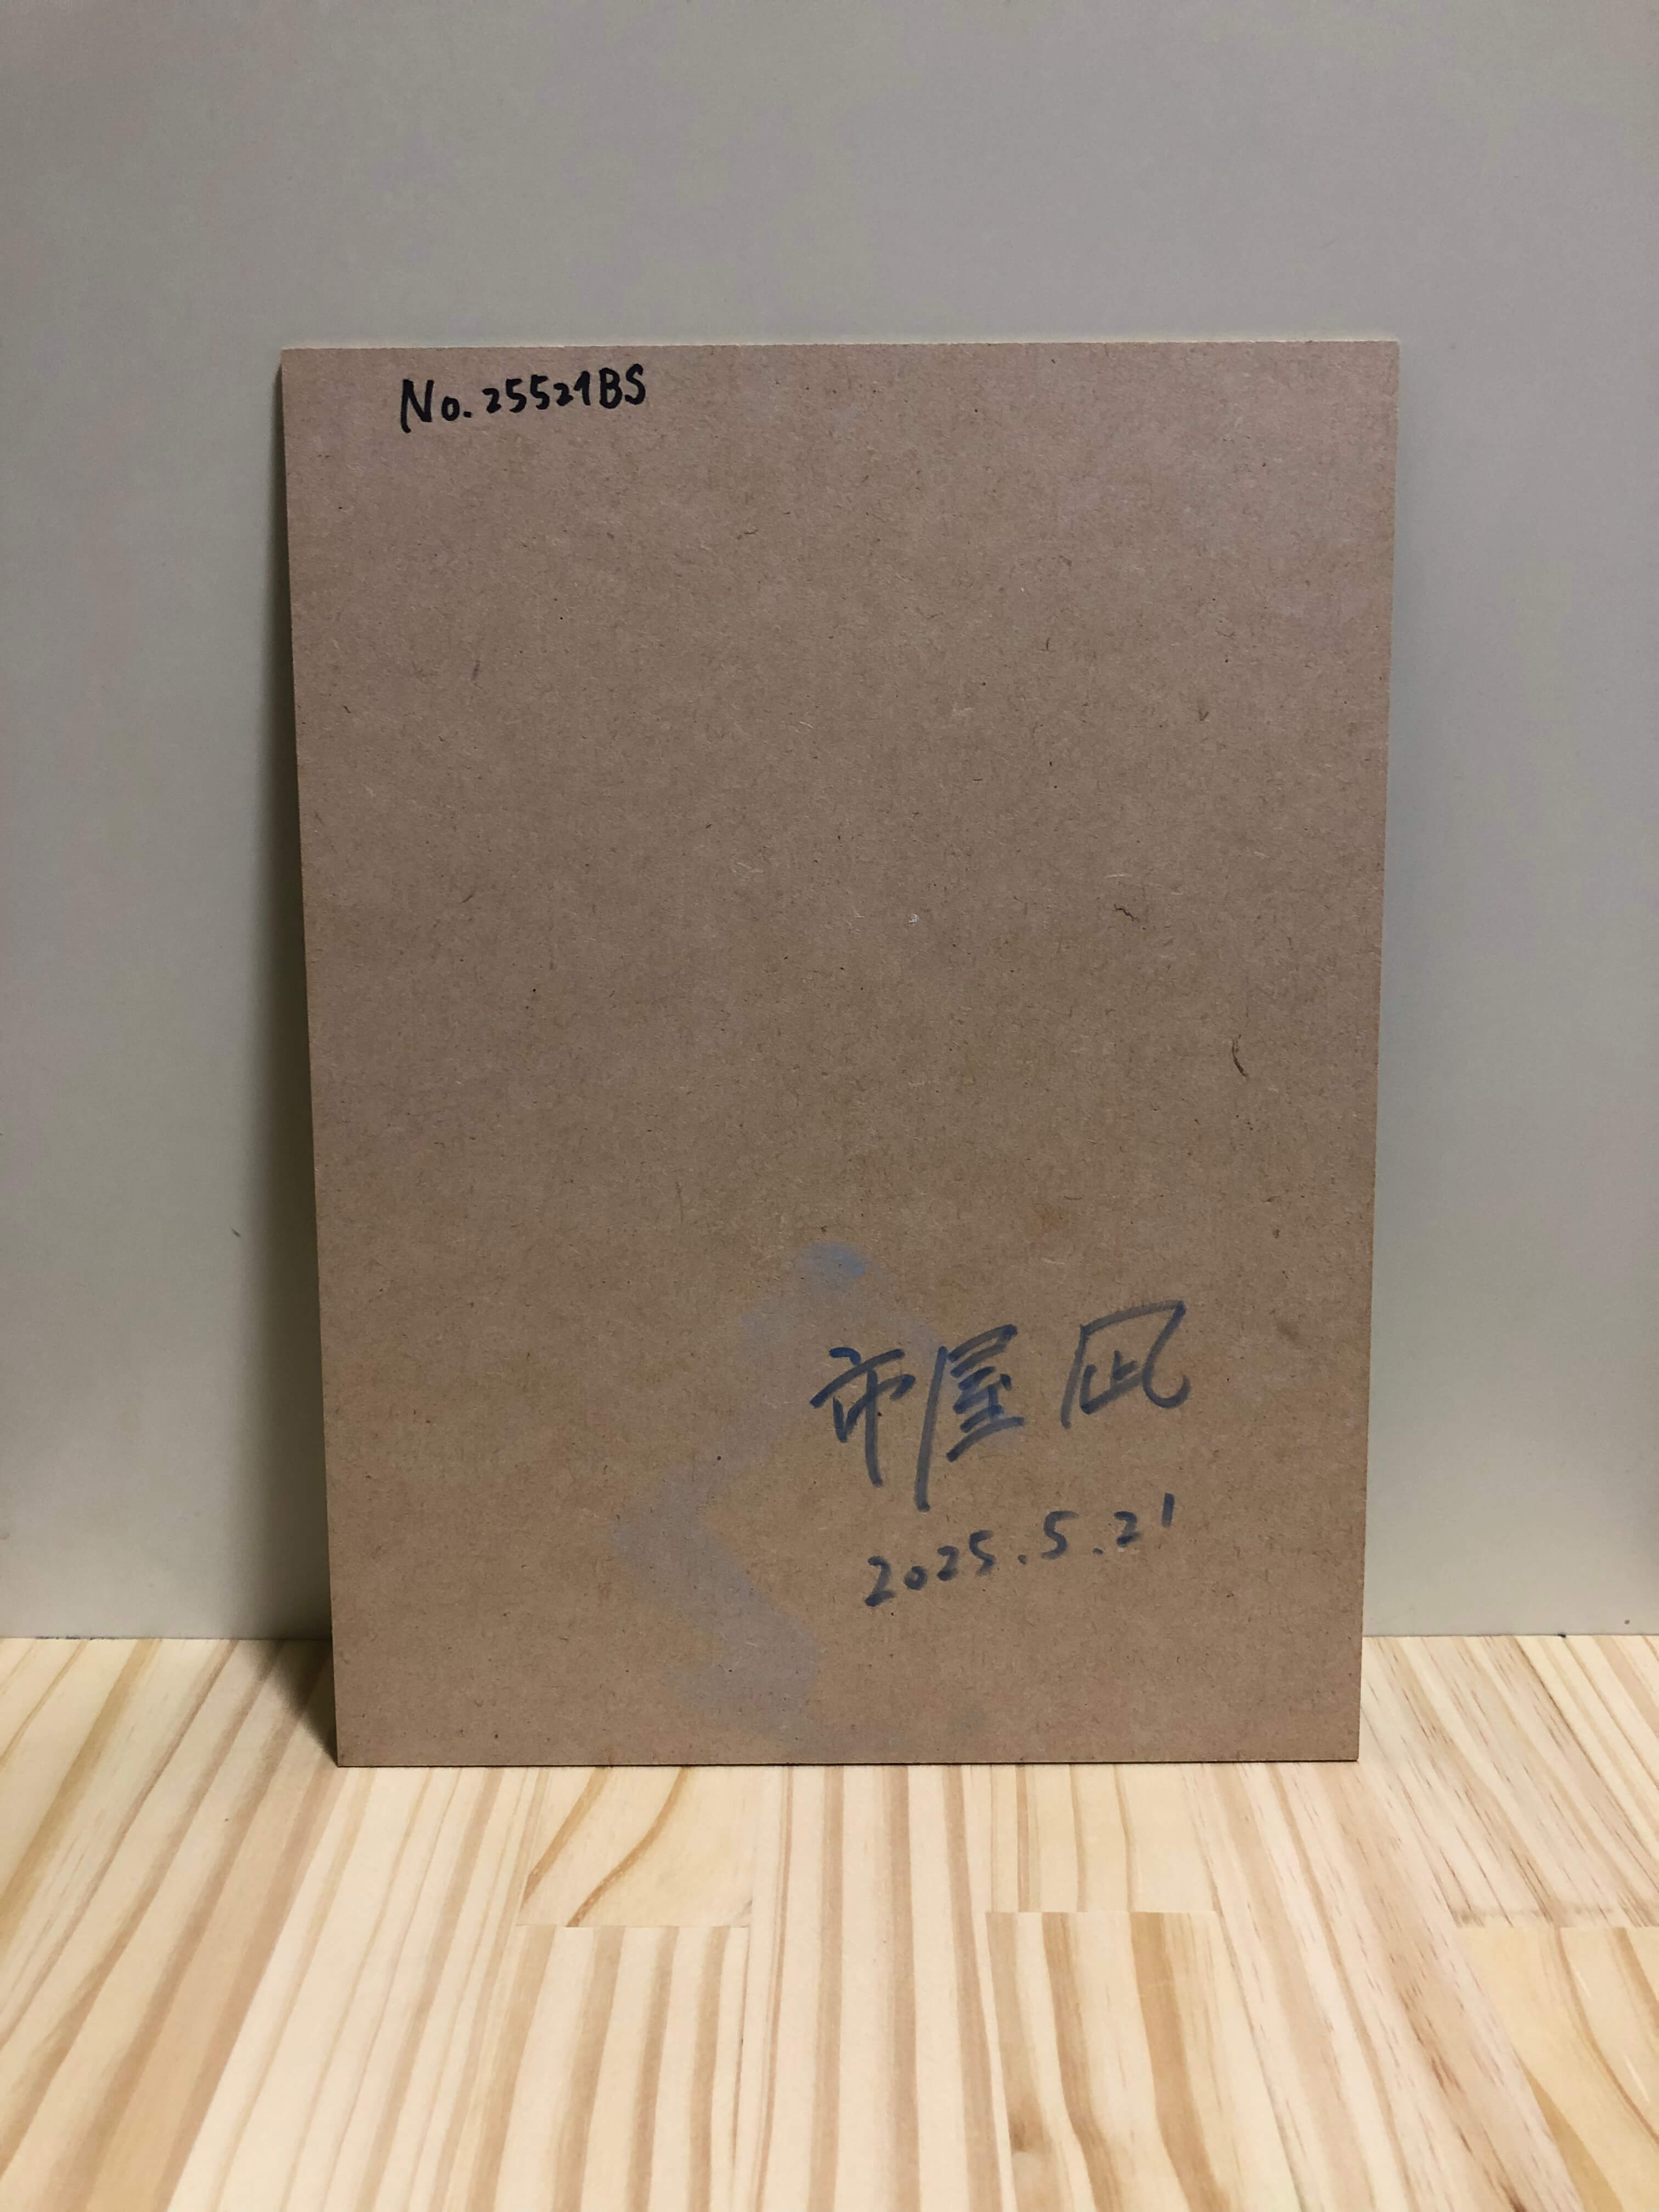 No.25521BS
市屋 凪
2025.5.21